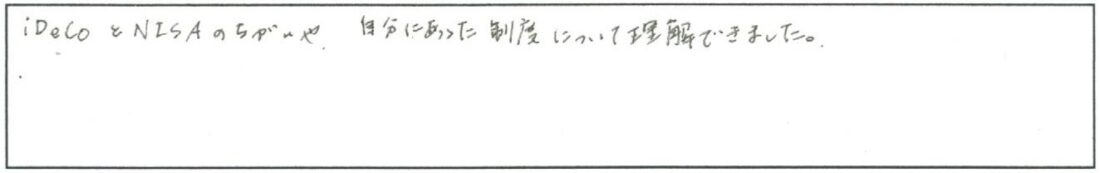 iDeCoとNISAのちがいや、自分にあった制度について理解できました。